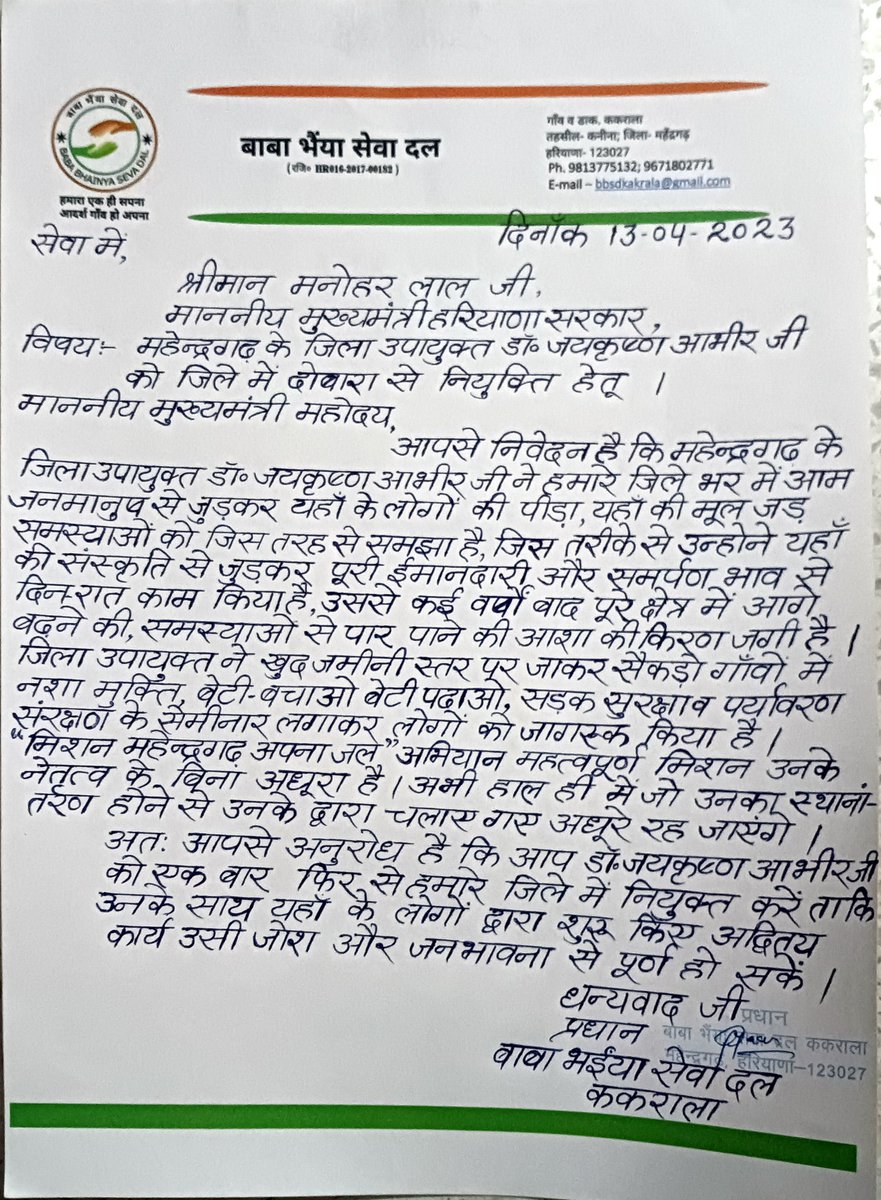 बाबा भैंया सेवा दल
BABA BHAINYA SEVA DAL
हमारा एक ही सपना
आदर्श गाँव हो अपना
बाबा भैंया सेवा दल
(रजि० HR016-2017-00182)
गाँव व डाक. ककराला
तहसील- कनीना; जिला- महेंद्रगढ़
हरियाणा- 123027
Ph. 9813775132; 9671802771
E-mail – bbsdkakrala@gmail.com
दिनाँक 13-04-2023
सेवा में,
श्रीमान मनोहर लाल जी,
माननीय मुख्यमंत्री हरियाणा सरकार,
विषय:- महेन्द्रगढ़ के जिला उपायुक्त डॉ० जयकृष्ण आभीर जी
को जिले में दोबारा से नियुक्ति हेतू ।
माननीय मुख्यमंत्री महोदय,
आपसे निवेदन है कि महेन्द्रगढ़ के
जिला उपायुक्त डॉ० जयकृष्ण आभीर जी ने हमारे जिले भर में आम
जनमानुष से जुड़कर यहाँ के लोगों की पीड़ा, यहाँ की मूल जड़
समस्याओं को जिस तरह से समझा है, जिस तरीके से उन्होने यहाँ
की संस्कृति से जुड़कर पूरी ईमानदारी और समर्पण भाव से
दिन-रात काम किया है, उससे कई वर्षों बाद पूरे क्षेत्र में आगे
बढ़ने की, समस्याओं से पार पाने की आशा की किरण जगी है ।
जिला उपायुक्त ने खुद जमीनी स्तर पर जाकर सैकड़ो गाँवों में
नशा मुक्ति, बेटी-बचाओ बेटी पढाओ, सड़क सुरक्षा व पर्यावरण
संरक्षण के सेमीनार लगाकर लोगों को जागरूक किया है ।
"मिशन महेन्द्रगढ़ अपना जल" अभियान महत्वपूर्ण मिशन उनके
नेतृत्व के बिना अधूरा है । अभी हाल ही में जो उनका स्थानां-
तर्रण होने से उनके द्वारा चलाए गए अधूरे रह जाएंगे ।
अतः आपसे अनुरोध है कि आप डॉ० जयकृष्ण आभीर जी
को एक बार फिर से हमारे जिले में नियुक्त करें ताकि
उनके साथ यहाँ के लोगों द्वारा शुरू किए अद्वितय
कार्य उसी जोश और जनभावना से पूर्ण हो सकें ।
धन्यवाद जी
प्रधान
प्रधान
बाबा भैंया सेवा दल ककराला
महेन्द्रगढ़, हरियाणा-123027
बाबा भईया सेवा दल
ककराला